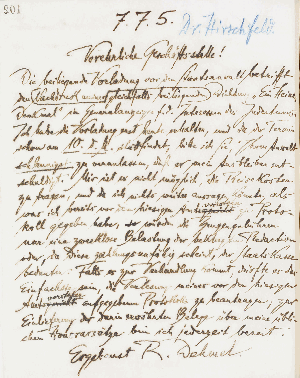 201
7.7.5.
Dr. Hirschfeld.
Verehrliche Geschäftsstelle!
Die beiliegende Vorladung vor den betrifft
den Nachdruck eines gleichfalls beiliegenden "Ein Heine-
Denkmal" im Generalanzeiger f. d. Interessen des Judentums
Ich habe die Vorladung erst heute erhalten, und da der Termin
schon am 10. d. M. stattfindet, bitte ich Sie, Ihren Anwalt
zu veranlassen, daß er mein Ausbleiben ent-
schuldigt. Mir ist es nicht möglich, die Reisekosten
zu tragen, und da ich nichts weiter aussagen könnte, als
was ich bereits vor dem hiesigen zu Proto-
koll gegeben habe, so würden die Zeugengebühren
nur eine zwecklose Belastung der Redaktion
oder, da diese zahlungsunfähig scheint, der Staatskasse
bedeuten. Falls es zur Verhandlung kommt, dürfte es das
Einfachste sein, die Verlesung meiner vor dem hiesigen
aufgegebenen Protokolle zu beantragen; zur
Einlieferung der darin erwähnten Belege über meine übli-
chen Honorarsätze bin ich jederzeit bereit.
Ergebenst R. Dehmel